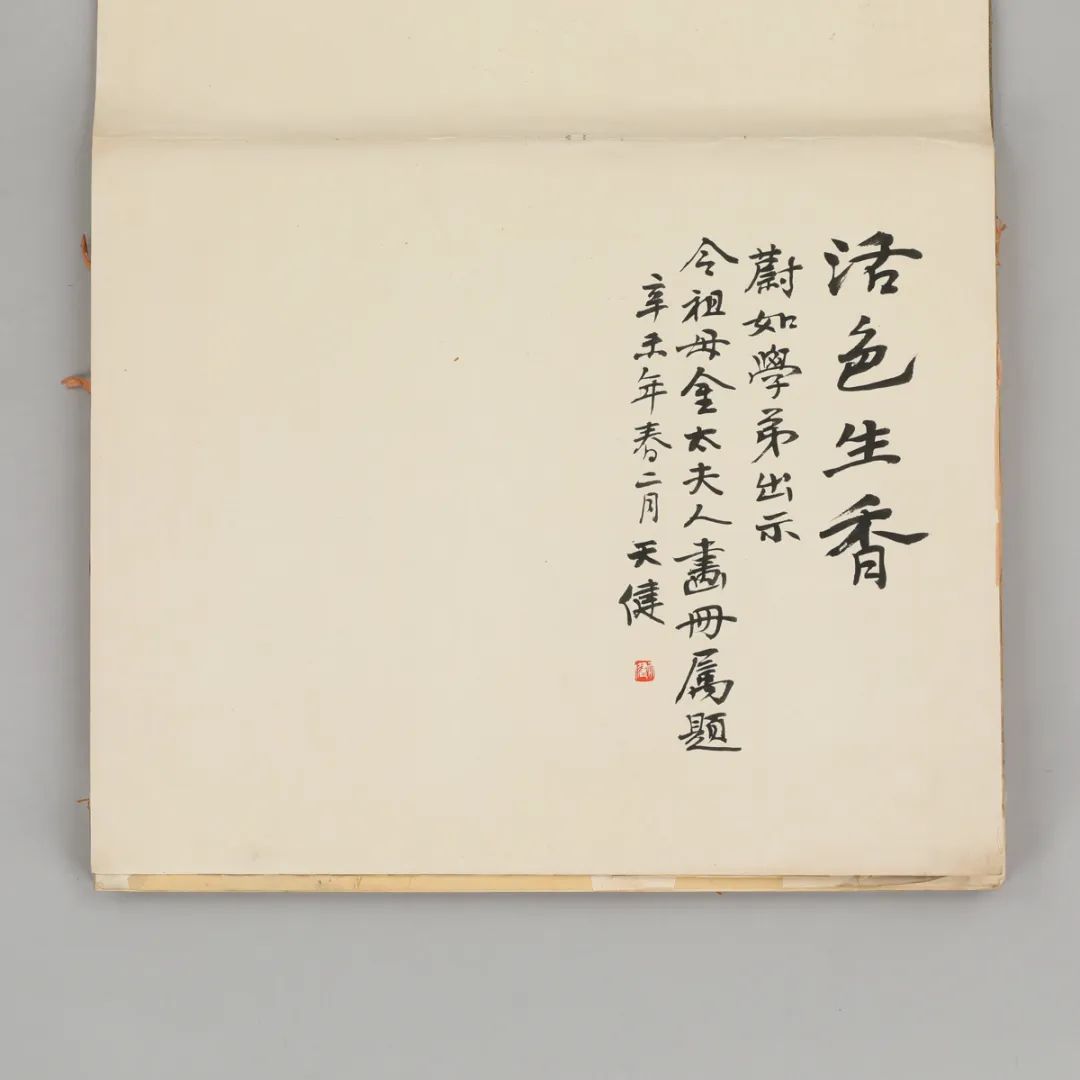 活色生香
蔚如學弟出示
令祖母金太夫人畫冊属題
辛未年春二月天健